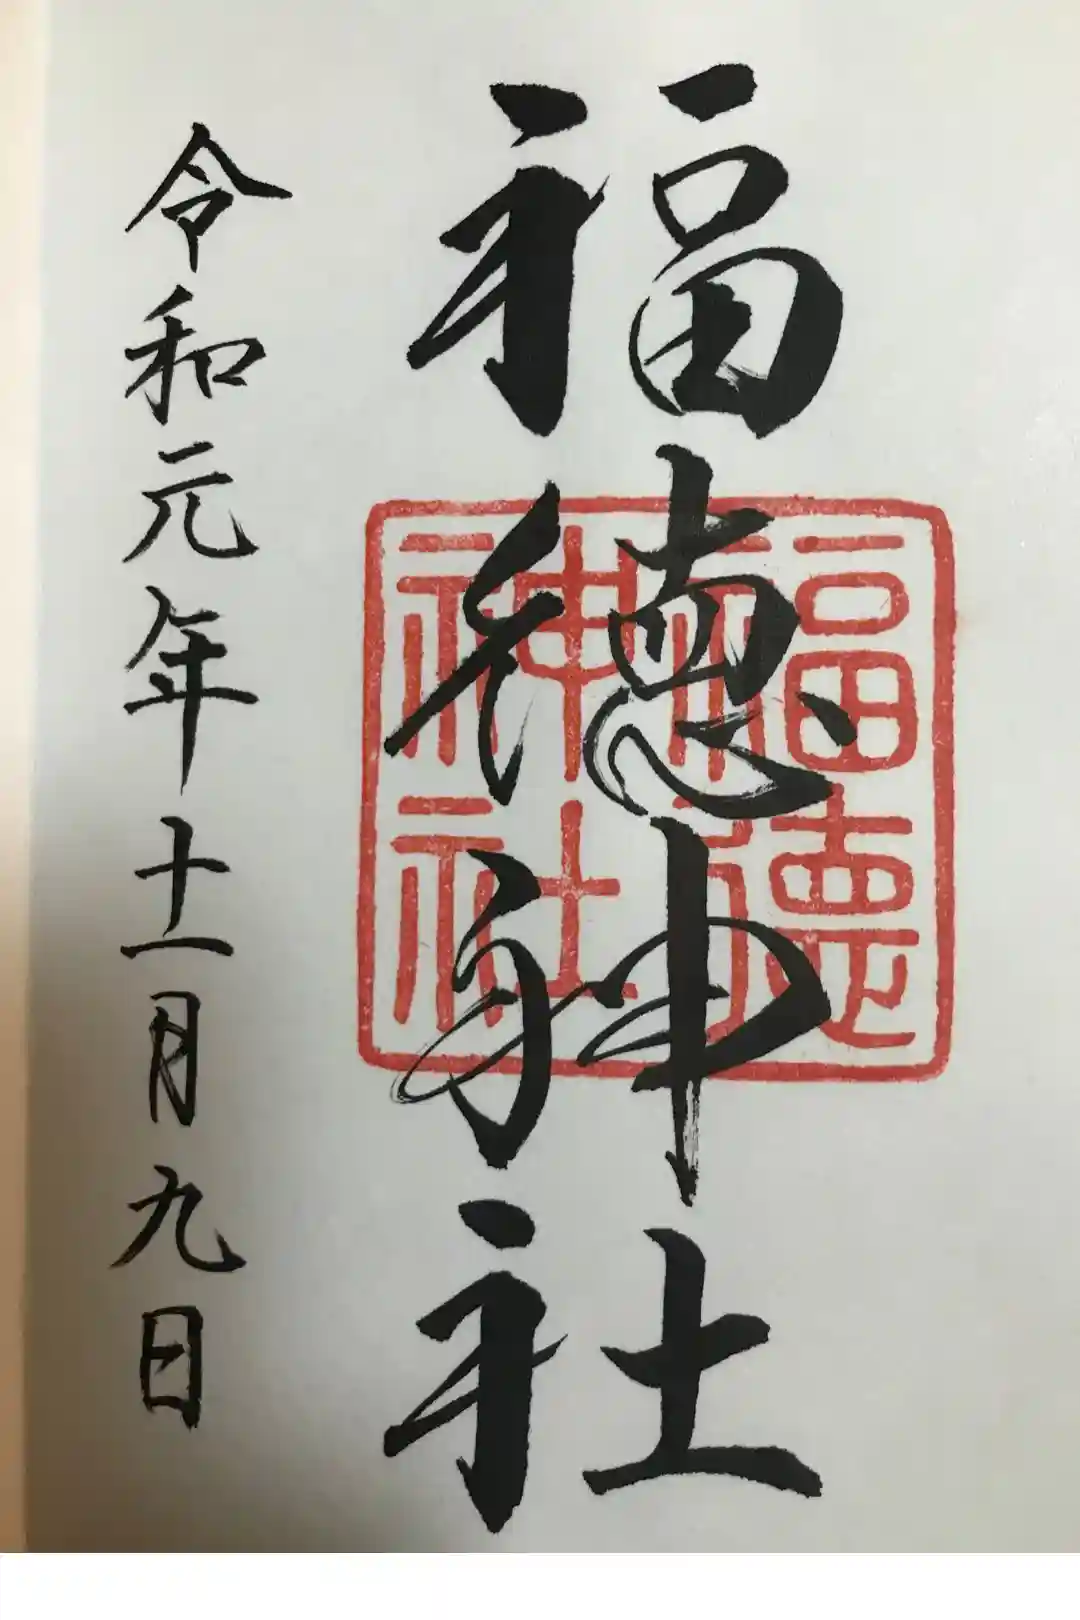 福徳神社
福徳
神社
令和元年十一月九日